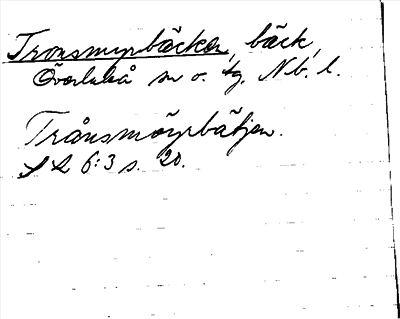 Tronsmyrbäcken, bäck,
Överluleå sn o. tg, Nb. l.
Trånsmöyrbätjen.
S L 6:3 s. 20.